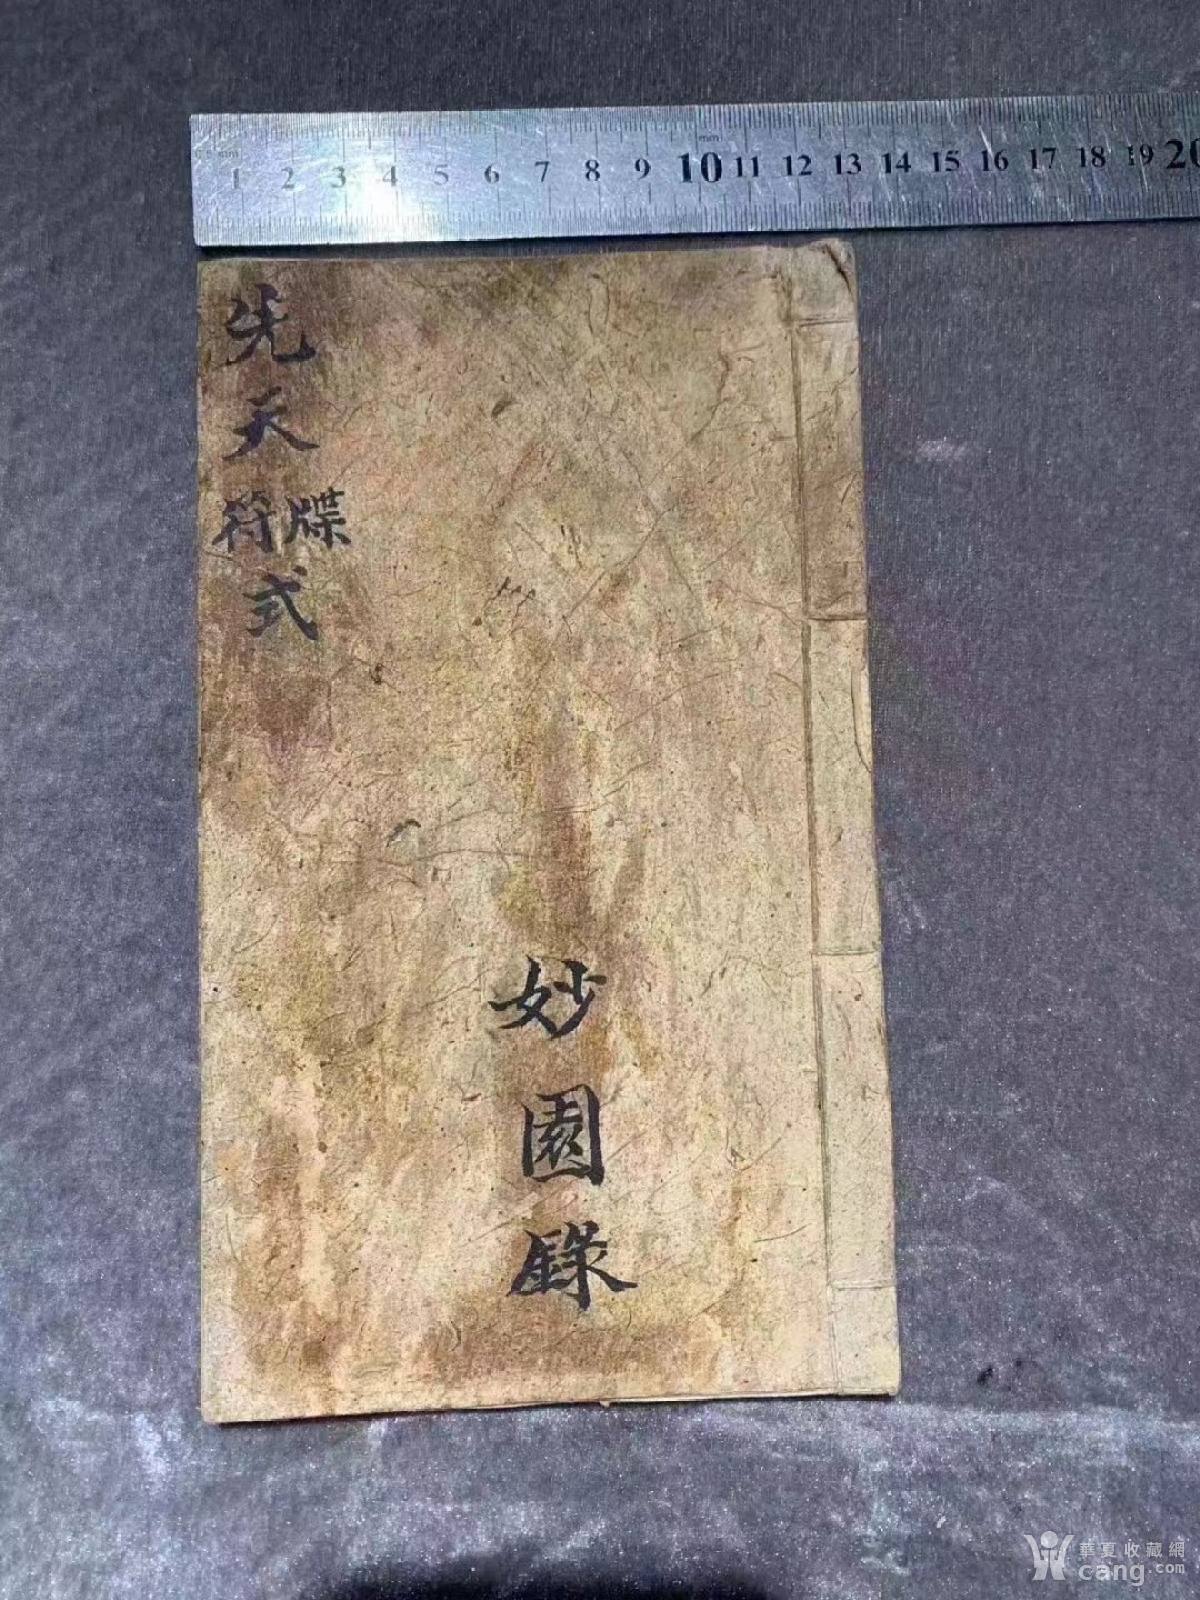 0.5 mm
mm
1 2 3 4 5 6 7 8 9 10 11 12 13 14 15 16 17 18 19 20
先天
符牒
式
妙園錄
華夏收藏網
cang.com